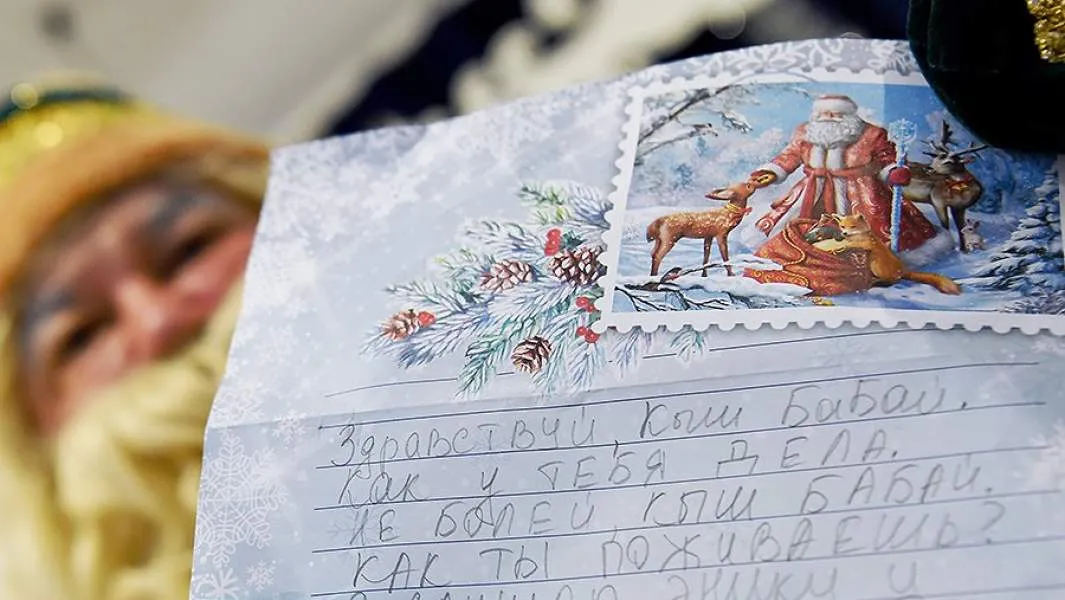 Здравствуй, Кыш Бабай.
Как у ТЕБЯ ДЕЛА.
НЕ БОЛЕЙ, КЫШ БАБАЙ.
КАК ТЫ ПОЖИВАЕШЬ?
И